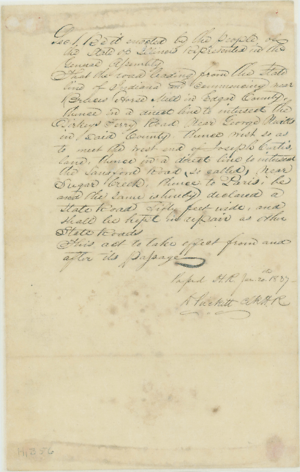 Sec 1. Be it enacted by the People of
the State of Illinois represented in the
General Assembly
That the road leading from the State
line of Indiana and Commencing near
Mill in Edgar County,
thence in a direct line to intersect the
Ferry Road near George
in said County thence west so as
to meet the west end of Joseph
lane, thence in a direct line to intersect
the Road so called, near
Sugar Creek, thence to Paris, be
and the same is hereby declared a
State Road, Sixty feet wide, and
shall be kept in repair as other
State Roads
This act to take effect from and
after its passage
Passed H.R. Jan 20th 1837
Prickett Clk H.R.